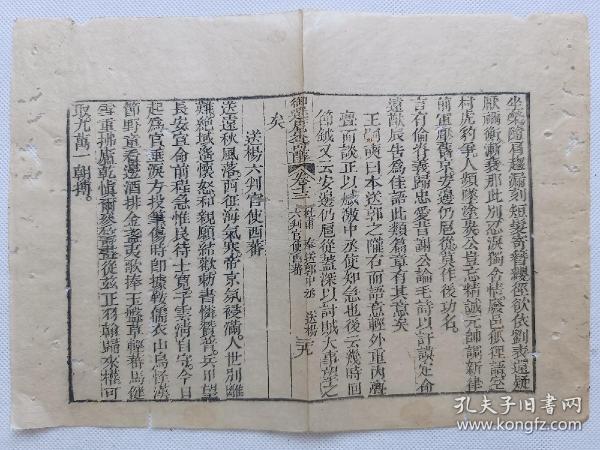 坐榮蔭肩趨漏刻短髮寄簪纓徑欲依劉表還疑
厭禰衡漸衰那此別忍淚獨含情廢邑狐狸語空
村虎豹爭人頻墜塗炭公豈忘精誠元帥調新律
前軍壓舊京安邊仍扈從莫作後功名
言有倫脊義歸忠愛昔謝公論毛詩以訏謨定命
遠猷辰告爲佳語此類篇章有其意矣
王嗣奭曰本送郭之隴右而語意輕外重內層
疊而談正以感激中丞使知急也後云幾時回
節鉞又云安邊仍扈從蓋深以討賊大事望之
矣
御選唐宋詩醇 卷十三 杜甫 奉送郭中丞 送楊六判官使西蕃
送楊六判官使西蕃
送遠秋風落西征海氣寒帝京氛祲滿人世別離
難絕域遙懷怒和親願結歡勅書憐贊普兵甲望
長安宣命前程急惟良待士寬子雲清自守今日
起爲官垂淚方投筆傷時即據鞍儒衣山鳥怪漢
節野童看邊酒排金盞夷歌捧玉盤草輕蕃馬健
雪重拂廬乾慎爾參籌畫從茲正羽翰歸來權可
取九萬一朝摶
孔夫子旧书网
www.kongfz.com